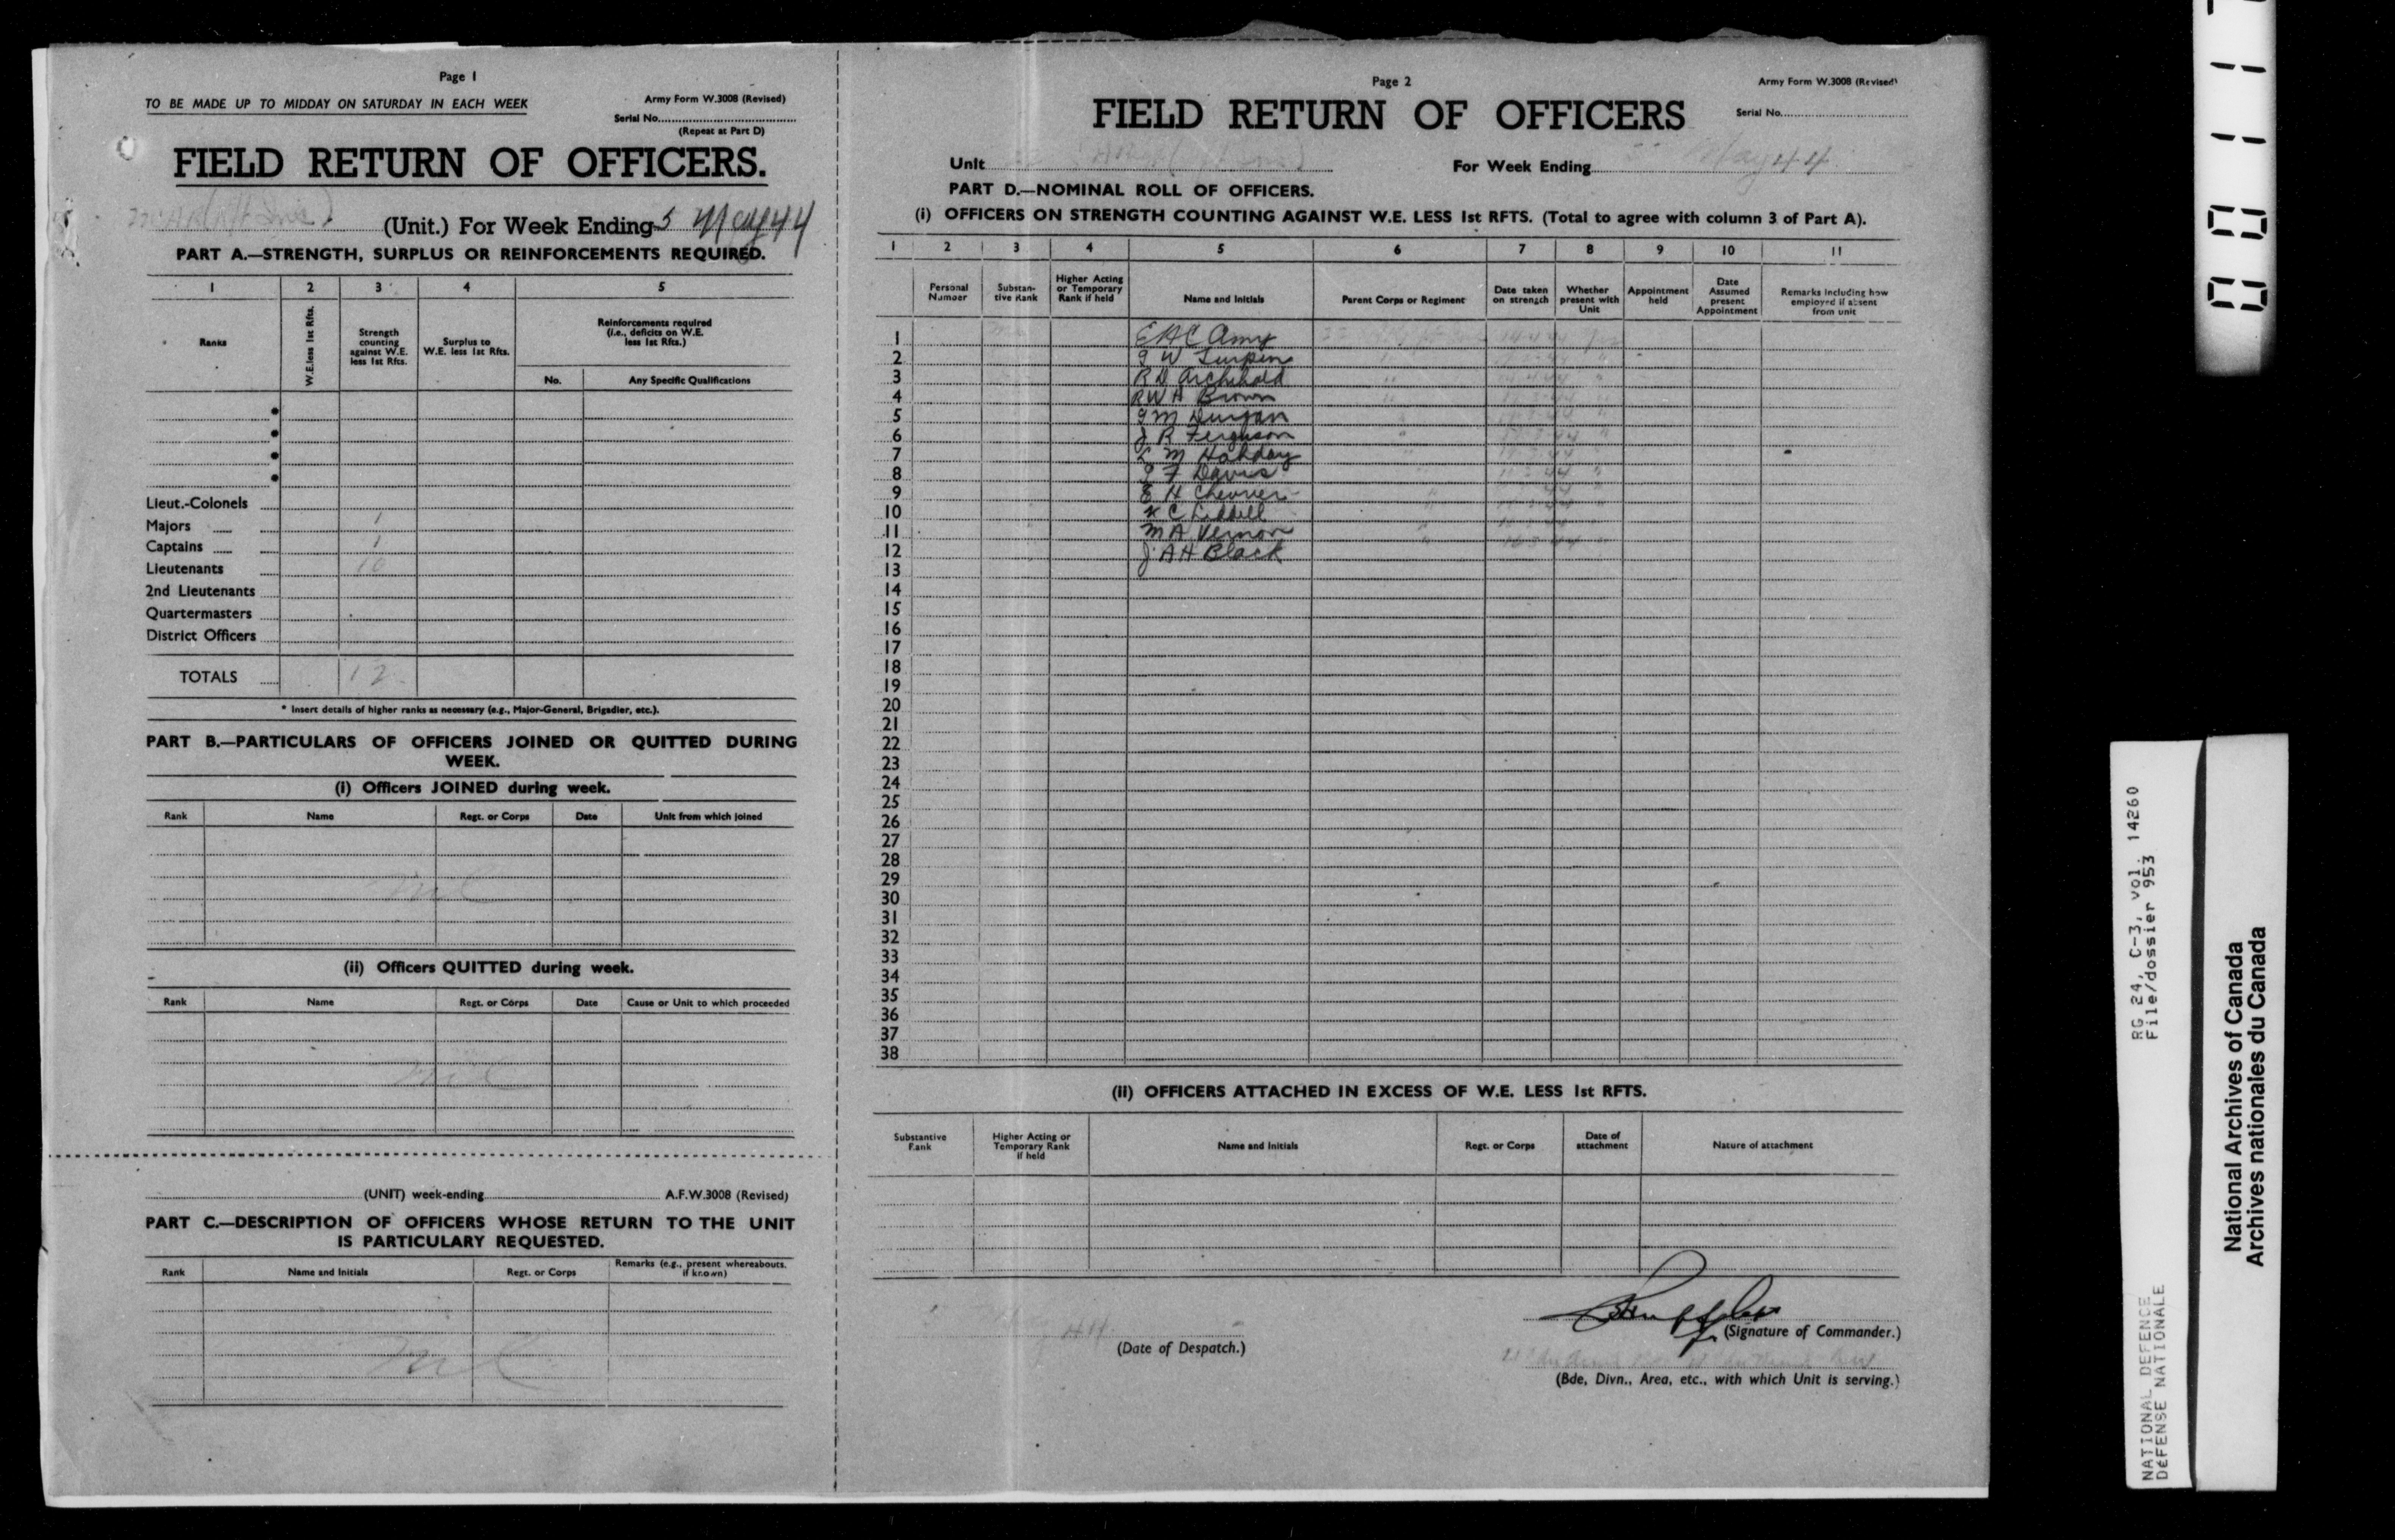 Page 1
TO BE MADE UP TO MIDDAY ON SATURDAY IN EACH WEEK
Army Form W.3008 (Revised)
Serial No.
(Repeat at Part D)
FIELD RETURN OF OFFICERS.
(Unit.) For Week Ending 5 May 44
PART A.—STRENGTH, SURPLUS OR REINFORCEMENTS REQUIRED.
1 2 3 4 5
Ranks
W.E. less 1st Rfts.
Strength counting against W.E. less 1st Rfts.
Surplus to W.E. less 1st Rfts.
Reinforcements required (i.e., deficits on W.E. less 1st Rfts.)
No. Any Specific Qualifications
Lieut.-Colonels
Majors 1
Captains 1
Lieutenants 10
2nd Lieutenants
Quartermasters
District Officers
TOTALS 12
* Insert details of higher ranks as necessary (e.g., Major-General, Brigadier, etc.).
PART B.—PARTICULARS OF OFFICERS JOINED OR QUITTED DURING
WEEK.
(i) Officers JOINED during week.
Rank Name Regt. or Corps Date Unit from which joined
Nil
(ii) Officers QUITTED during week.
Rank Name Regt. or Corps Date Cause or Unit to which proceeded
Nil
(UNIT) week-ending A.F.W.3008 (Revised)
PART C.—DESCRIPTION OF OFFICERS WHOSE RETURN TO THE UNIT
IS PARTICULARY REQUESTED.
Rank Name and Initials Regt. or Corps Remarks (e.g., present whereabouts, if known)
Nil
Page 2
Army Form W.3008 (Revised)
FIELD RETURN OF OFFICERS
Serial No.
Unit For Week Ending May 44
PART D.—NOMINAL ROLL OF OFFICERS.
(i) OFFICERS ON STRENGTH COUNTING AGAINST W.E. LESS 1st RFTS. (Total to agree with column 3 of Part A).
1 2 3 4 5 6 7 8 9 10 11
Personal Number
Substantive Rank
Higher Acting or Temporary Rank if held
Name and Initials
Parent Corps or Regiment
Date taken on strength
Whether present with Unit
Appointment held
Date Assumed present Appointment
Remarks including how employed if absent from unit
1 EAC Amy
2 G W Turpin
3 R D Archibald
4 R W A Brown
5 G M Dungan
6 J R Ferguson
7 L M Hahday
8 G F Davis
9 E H Chevrier
10 K C Liddell
11 M A Vernon
12 J A H Black
13
14
15
16
17
18
19
20
21
22
23
24
25
26
27
28
29
30
31
32
33
34
35
36
37
38
(ii) OFFICERS ATTACHED IN EXCESS OF W.E. LESS 1st RFTS.
Substantive Rank
Higher Acting or Temporary Rank if held
Name and Initials
Regt. or Corps
Date of attachment
Nature of attachment
44
(Date of Despatch.)
(Signature of Commander.)
(Bde, Divn., Area, etc., with which Unit is serving.)
RG 24, C-3, vol. 14260
File/dossier 953
NATIONAL DEFENCE
DÉFENSE NATIONALE
National Archives of Canada
Archives nationales du Canada